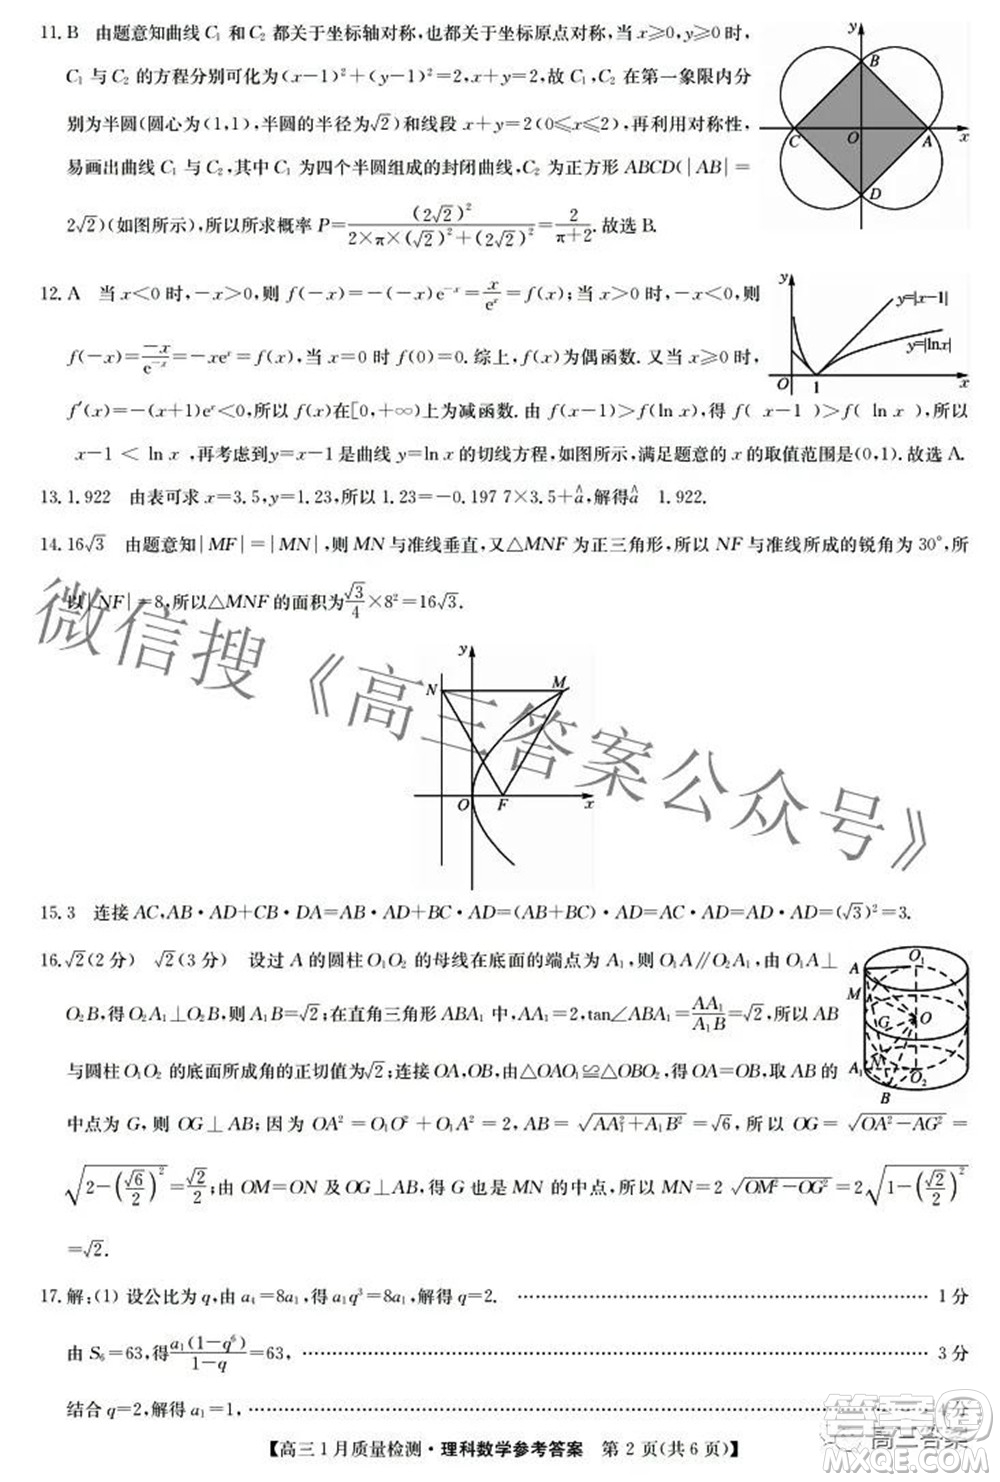 11. B　由题意知曲线 C₁ 和 C₂ 都关于坐标轴对称,也都关于坐标原点对称,当 x⩾0,y⩾0 时,
C₁ 与 C₂ 的方程分别可化为(x−1)²+(y−1)²=2,x+y=2,故 C₁,C₂ 在第一象限内分
别为半圆(圆心为(1,1),半圆的半径为√2)和线段 x+y=2(0⩽x⩽2),再利用对称性,
易画出曲线 C₁ 与 C₂,其中 C₁ 为四个半圆组成的封闭曲线,C₂ 为正方形 ABCD(|AB|=
2√2)(如图所示),所以所求概率 P=(2√2)²/(2×π×(√2)²+(2√2)²)=2/(π+2).故选 B.
y
B
C
O
A
x
D
12. A　当 x<0 时,−x>0,则 f(−x)=−(−x)e⁻ˣ=x/eˣ=f(x);当 x>0 时,−x<0,则
f(−x)=−x/e⁻ˣ=−xeˣ=f(x),当 x=0 时 f(0)=0.综上,f(x)为偶函数.又当 x⩾0 时,
f′(x)=−(x+1)eˣ<0,所以 f(x)在[0,+∞)上为减函数.由 f(x−1)>f(ln x),得 f( x−1 )>f( ln x ),所以
x−1 < ln x ,考虑到曲线 y=x−1 是曲线 y=ln x 的切线方程,如图所示,满足题意的 x 的取值范围是(0,1).故选 A.
y
y=|x−1|
y=|ln x|
O
1
x
13. 1.922　由表可求 x=3.5,y=1.23,所以 1.23=−0.197 7×3.5+â,解得 â　1.922.
14. 16√3　由题意知|MF|=|MN|,则 MN 与准线垂直,又△MNF 为正三角形,所以 NF 与准线所成的锐角为 30°,所
以|NF|=8,所以△MNF 的面积为√3/4×8²=16√3.
y
N
M
O
F
x
15. 3　连接 AC,AB·AD+CB·DA=AB·AD+BC·AD=(AB+BC)·AD=AC·AD=AD·AD=(√3)²=3.
16. √2(2 分)　√2(3 分)　设过 A 的圆柱 O₁O₂ 的母线在底面的端点为 A₁,则 O₁A∥O₂A₁,由 O₁A⊥
O₂B,得 O₂A₁⊥O₂B,则 A₁B=√2;在直角三角形 ABA₁ 中,AA₁=2,tan∠ABA₁=AA₁/A₁B=√2,所以 AB
与圆柱 O₁O₂ 的底面所成角的正切值为√2;连接 OA,OB,由△OAO₁≌△OBO₂,得 OA=OB.取 AB 的
中点为 G,则 OG⊥AB;因为 OA²=O₁O²+O₁A²=2,AB=√(AA₁²+A₁B²)=√6,所以 OG=√(OA²−AG²)=
√(2−(√6/2)²)=√2/2;由 OM=ON 及 OG⊥AB,得 G 也是 MN 的中点,所以 MN=2 √(OM²−OG²)=2√(1−(√2/2)²)
=√2.
A
O₁
M
G
O
A₁
N
O₂
B
17. 解:(1) 设公比为 q,由 a₄=8a₁,得 a₁q³=8a₁,解得 q=2. …………………… 1 分
由 S₆=63,得 a₁(1−q⁶)/(1−q)=63, …………………… 3 分
结合 q=2,解得 a₁=1, …………………… 4 分
【高三 1 月质量检测·理科数学参考答案　第 2 页(共 6 页)】
微信搜《高三答案公众号》
高三答案